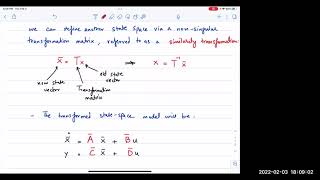 we can define another state space via a non-singular
transformation matrix, referred to as a similarity transformation
x̄ = Tx ⇒ x = T⁻¹ x̄
new state vector
Transformation matrix
old state vector
- The transformed state-space model will be:
ẋ̄ = Ā x̄ + B̄ u
y = C̄ x̄ + D̄ u
2022-02-03 18:09:02